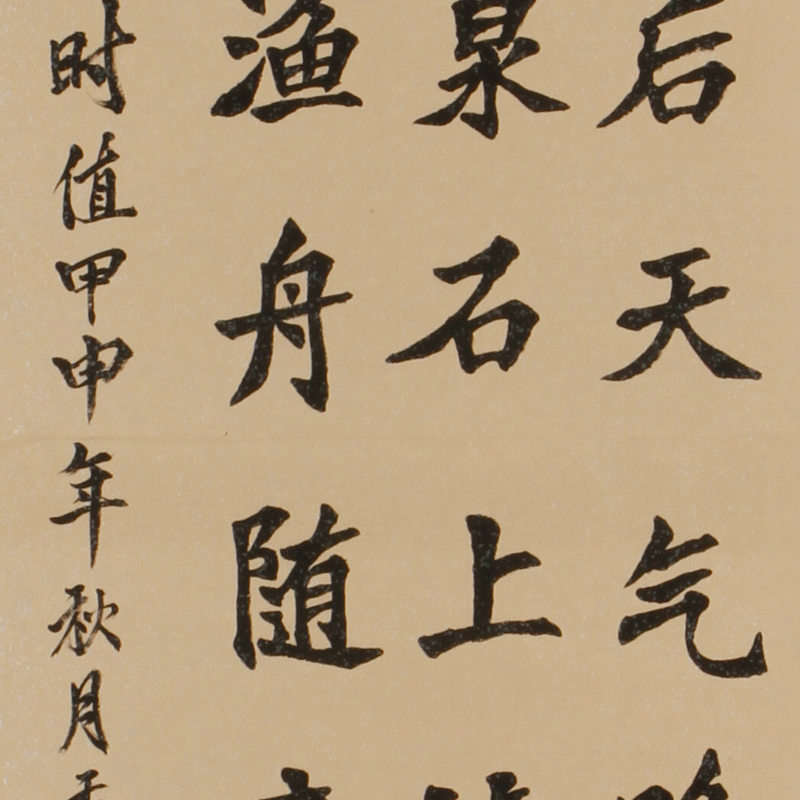 后天气
泉石上
渔舟随
时值甲申年秋月